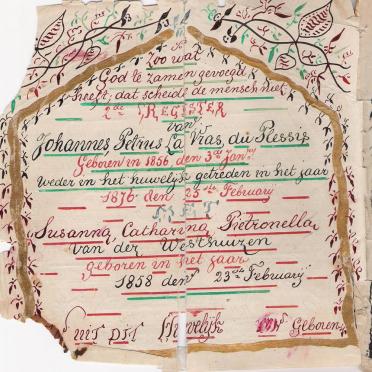 Zoo wat
God te zamen gevoegd
heeft, dat scheide de mensch niet
2de REGISTER
van
Johannes Petrus La Gras du Plessis
Geboren in 1856 den 3de Janry
Weder in het huwelijk getreden in het jaar
1876 den 23ste February
MET
Susanna Catharina Pietronella
van der Westhuizen
geboren in het jaar
1858 den 23ste February
uit DIT Huwelijk Geboren